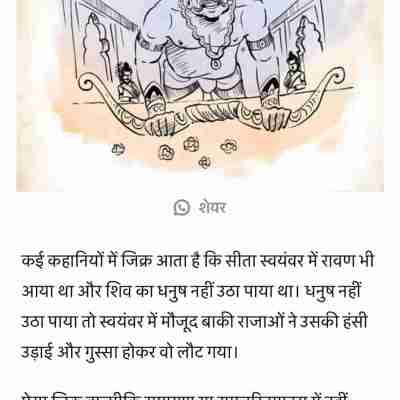 शेयर
कई कहानियों में जिक्र आता है कि सीता स्वयंवर में रावण भी
आया था और शिव का धनुष नहीं उठा पाया था। धनुष नहीं
उठा पाया तो स्वयंवर में मौजूद बाकी राजाओं ने उसकी हंसी
उड़ाई और गुस्सा होकर वो लौट गया।